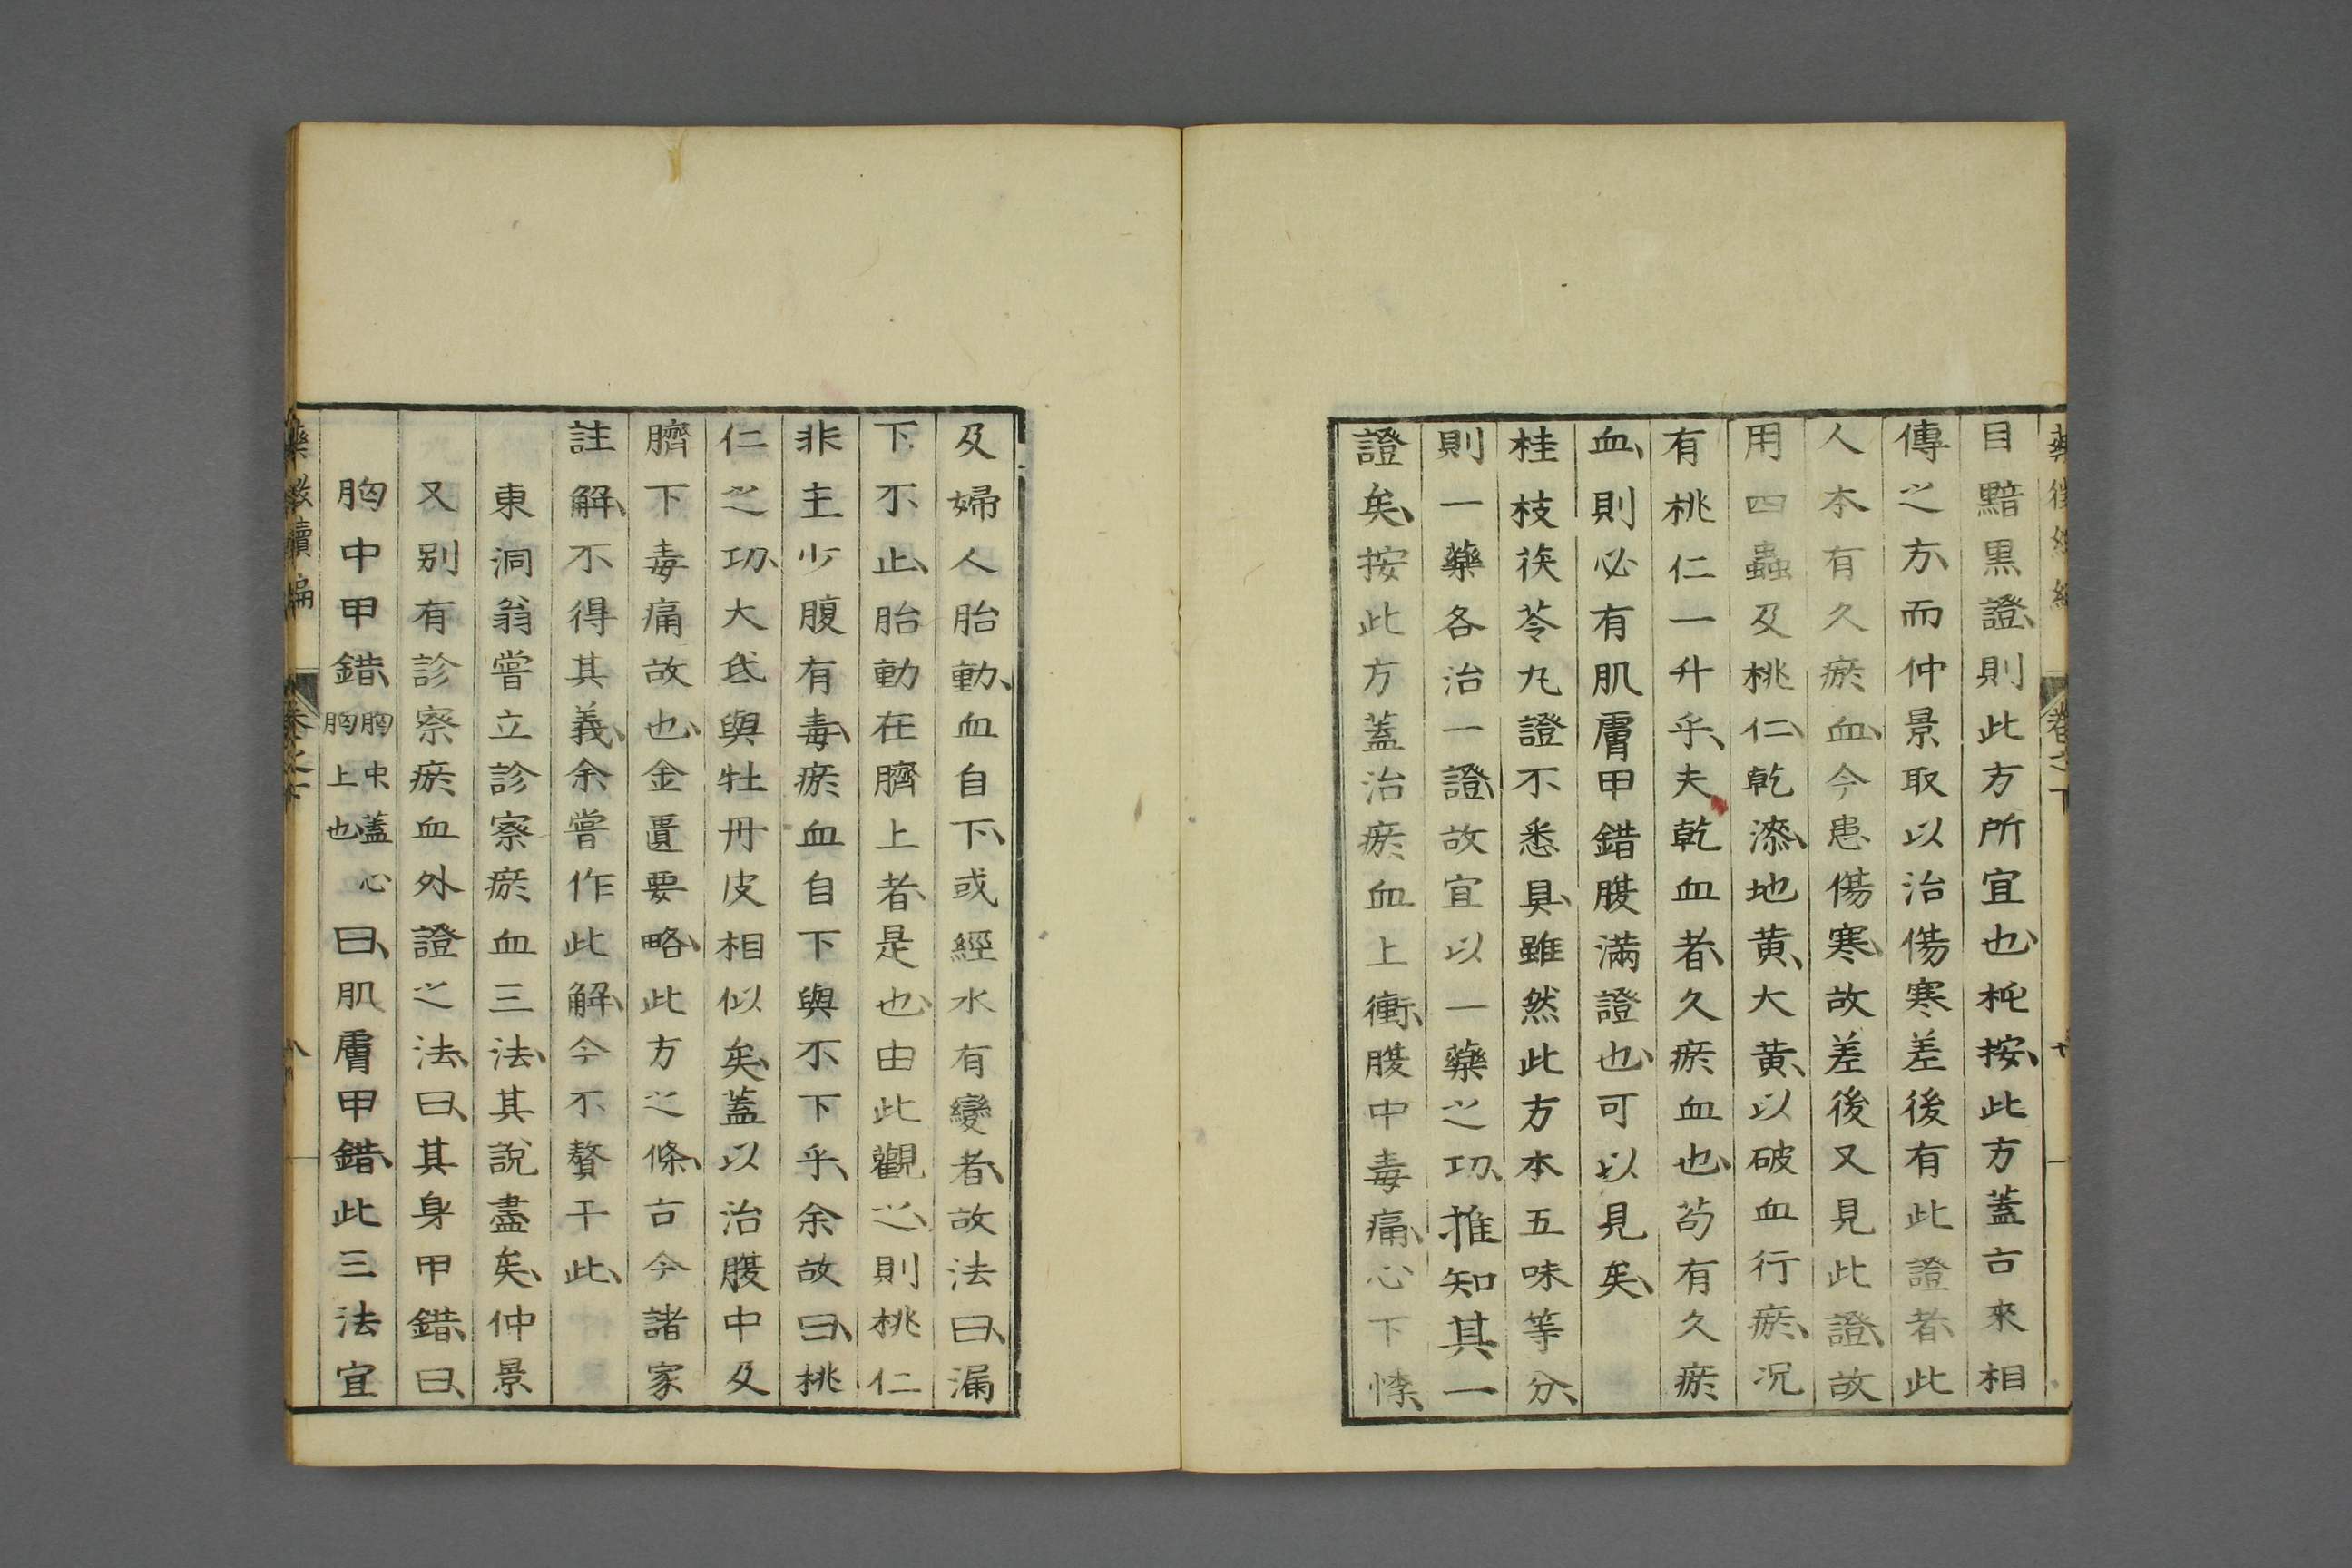 目黯黒證、則此方所宜也、杔按、此方蓋古來相
傳之方、而仲景取以治傷寒差後有此證者、此
人本有久瘀血、今患傷寒、故差後又見此證、故
用四蟲及桃仁、乾漆、地黄、大黄、以破血行瘀、况
有桃仁一升乎、夫乾血者、久瘀血也、苟有久瘀
血、則必有肌膚甲錯腹滿證也、可以見矣、
桂枝茯苓丸證不悉具、雖然此方本五味等分、
則一藥各治一證、故宜以一藥之功、推知其一
證矣、按此方蓋治瘀血上衝、腹中毒痛、心下悸、
及婦人胎動、血自下、或經水有變者、故法曰、漏
下不止、胎動在臍上者、是也、由此觀之、則桃仁
非主少腹有毒、瘀血自下與不下乎、余故曰、桃
仁之功、大氐與牡丹皮相似矣、蓋以治腹中及
臍下毒痛故也、金匱要略、此方之條、古今諸家
註解、不得其義、余嘗作此解、今不贅于此、
東洞翁嘗立診察瘀血三法、其說盡矣、仲景
又别有診察瘀血外證之法、曰、其身甲錯、曰、
胸中甲錯、胸中、蓋心胸上也曰、肌膚甲錯、此三法宜